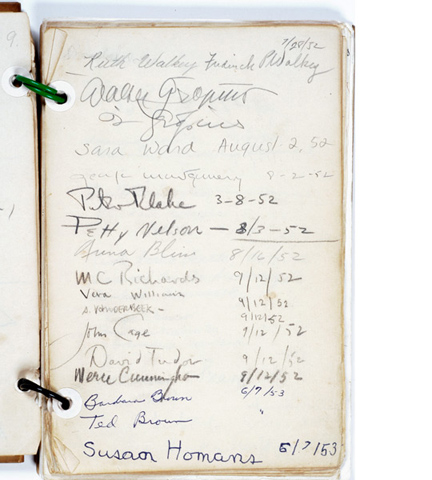 9.
7/25/52
Ruth Walkey Fredrick P. Walkey
Walter Gropius
Is Gropius
Sara Ward August 2, 52
George Montgomery 8-2-52
Peter Blake 3-8-52
Petty Nelson — 8/3-52
Anna Bliss 8/16/52
MC Richards 9/12/52
Vera Williams 9/12/52
S. VANDERBEEK - 9/12/52
John Cage 9/12/52
David Tudor 9/12/52
Merce Cunningham 9/12/52
Barbara Brown 6/7/53
Ted Brown "
Susan Homans 6/7/53